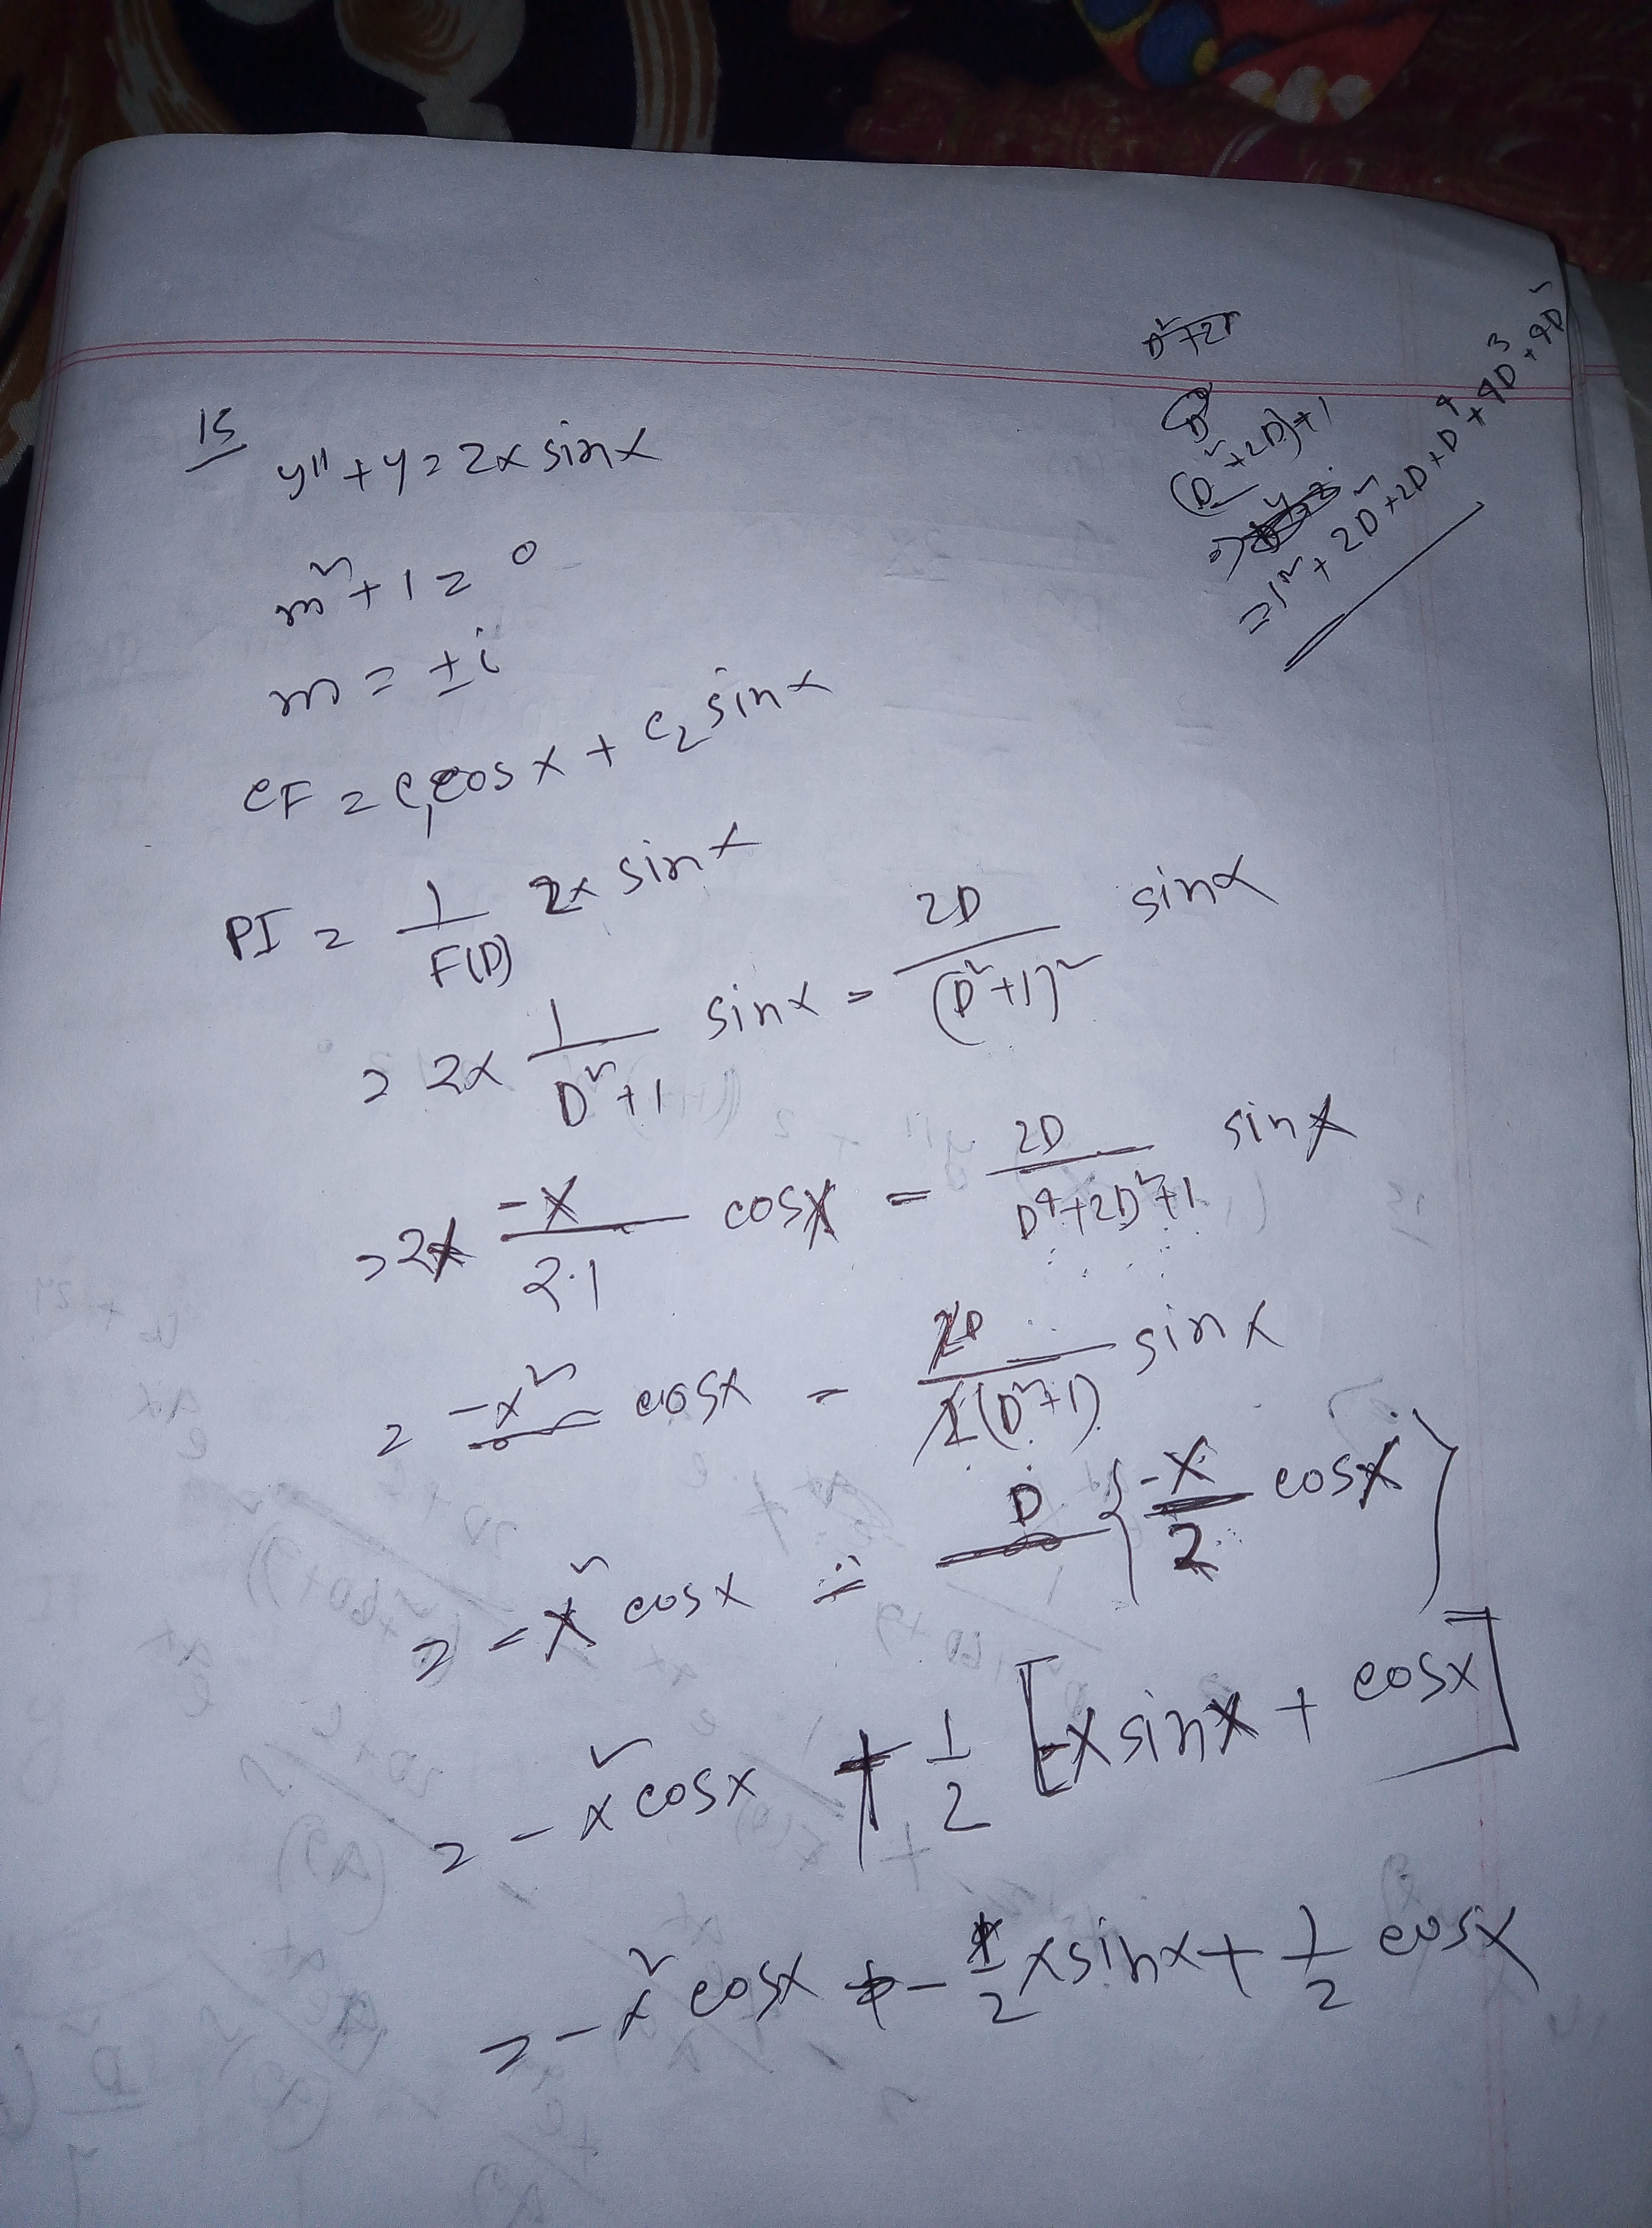 15
y'' + y = 2x sinx
m² + 1 = 0
m = ± i
CF = c₁cosx + c₂ sinx
PI = 1/F(D) 2x sinx
= 2x 1/(D²+1) sinx - 2D/(D²+1)² sinx
= 2x -x/2.1 cosx - 2D/(D⁴+2D²+1) sinx
= -x² cosx - 2D/2(D²+1) sinx
= -x² cosx - D {-x/2 cosx}
= -x² cosx + 1/2 [-x sinx + cosx]
= -x² cosx - 1/2 x sinx + 1/2 cosx
D²+2D
(D²+2D)+1
= 1² + 2D² + 2D + D⁴ + 4D³ + 4D²